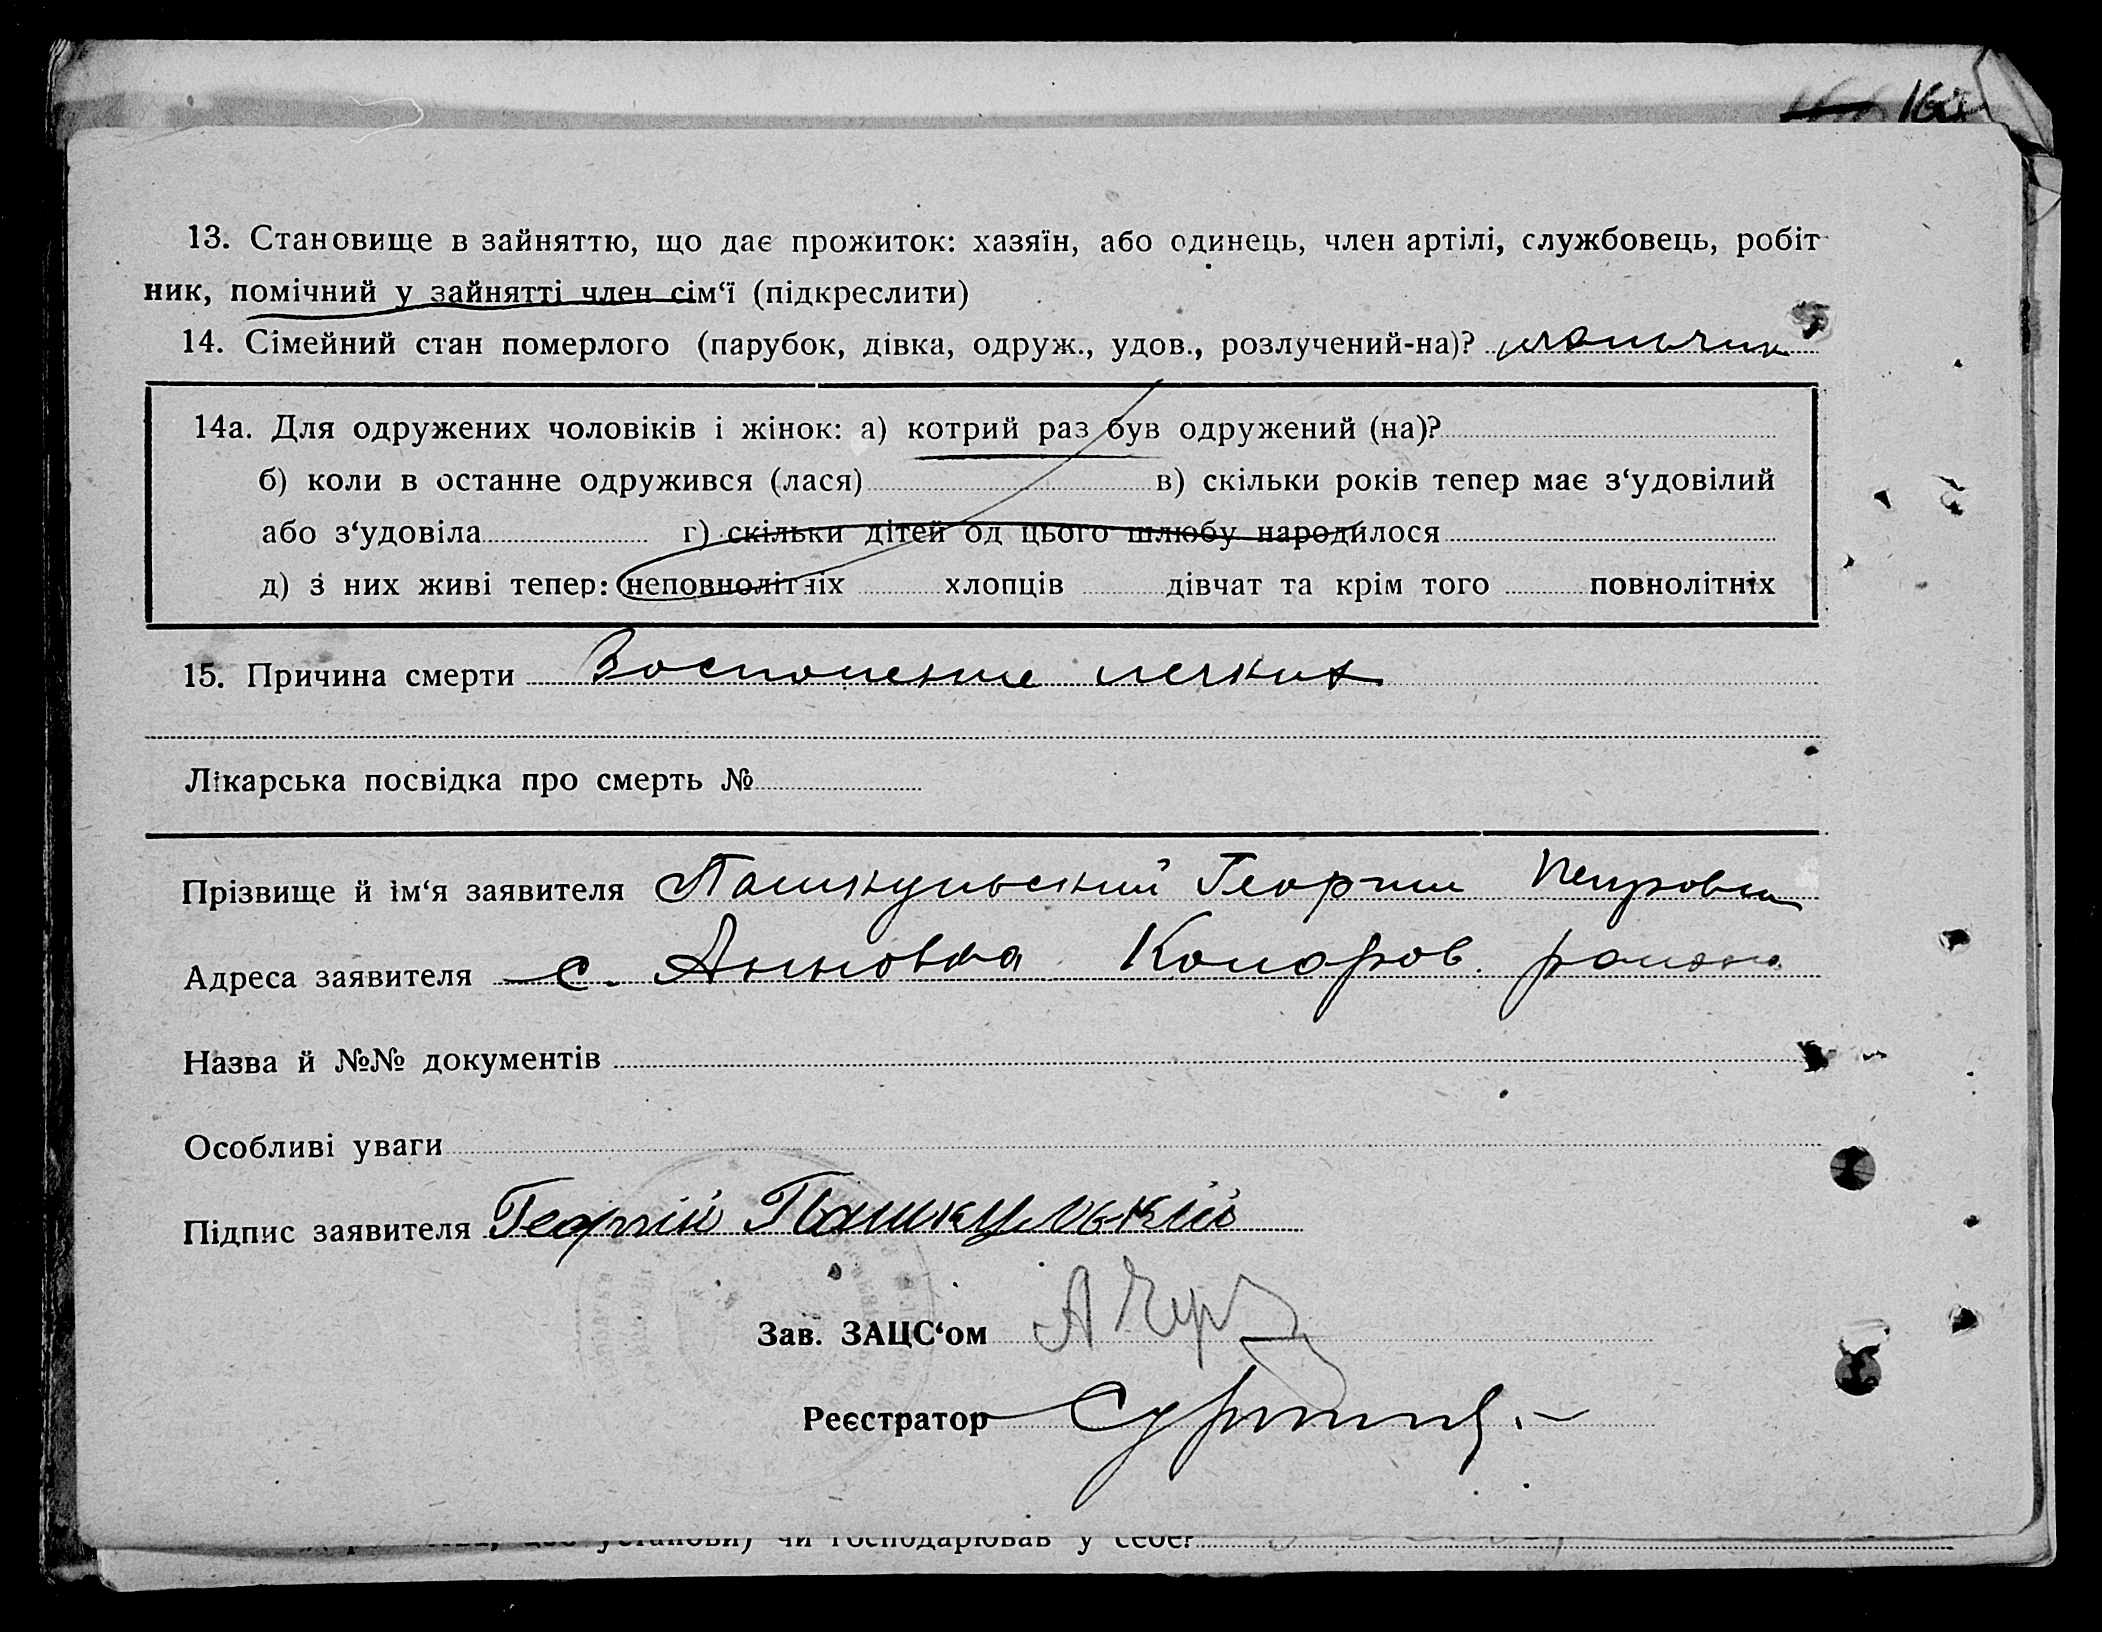 13. Становище в зайняттю, що дає прожиток: хазяїн, або одинець, член артілі, службовець, робіт
ник, помічний у зайнятті член сім‘ї (підкреслити)
14. Сімейний стан померлого (парубок, дівка, одруж., удов., розлучений-на)? мальчик
14а. Для одружених чоловіків і жінок: а) котрий раз був одружений (на)?
б) коли в останне одружився (лася) в) скільки років тепер має з‘удовілий
або з‘удовіла г) скільки дітей од цього шлюбу народилося
д) з них живі тепер: неповнолітніх хлопців дівчат та крім того повнолітніх
15. Причина смерти Восполение легких
Лікарська посвідка про смерть №
Прізвище й ім‘я заявителя Пашкульский Георгии Петрович
Адреса заявителя с. Анновка Комаров. района
Назва й №№ документів
Особливі уваги
Підпис заявителя Георгій Пашкульскій
Зав. ЗАЦС‘ом
Реєстратор